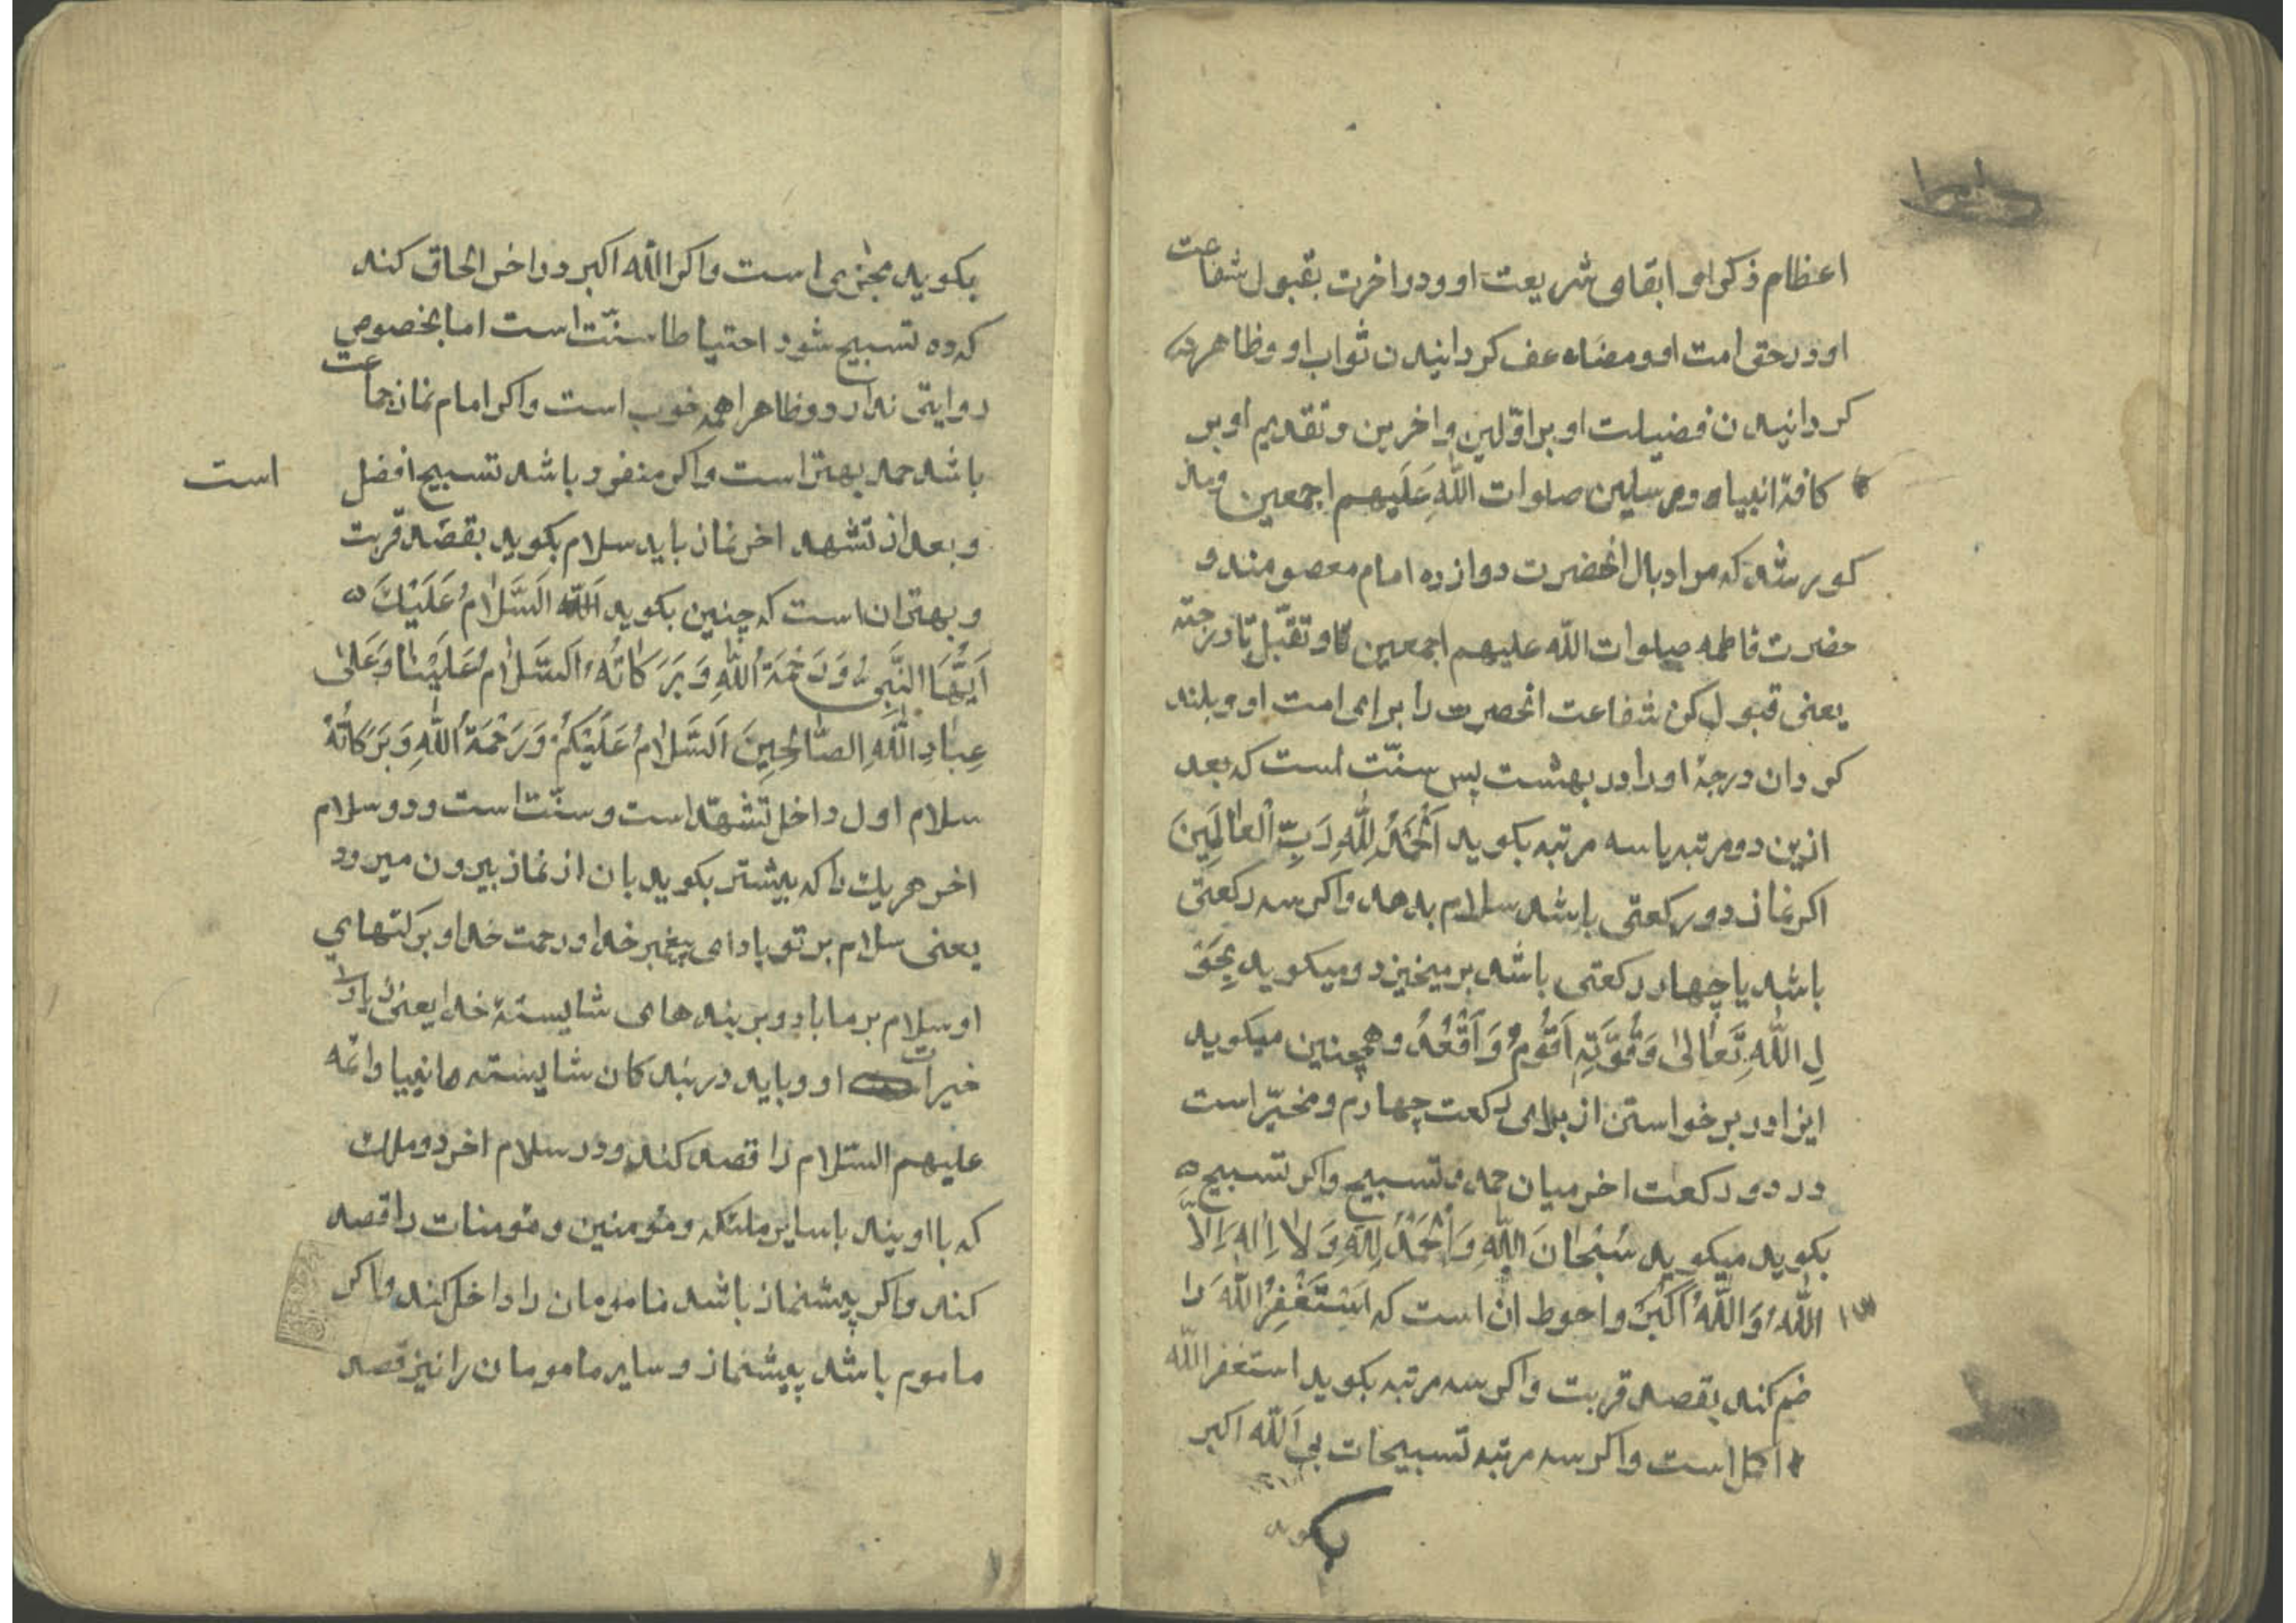 اعظام ذکر او و ابقای شریعت او و در اخرت بقبول شفاعت
او در حق امت او و مضاعف کردانیدن ثواب او و ظاهر
کردانیدن فضیلت او بر اوّلین و اخرین و تقدیم او بر
کافهٔ انبیاء و مرسلین صلوات اللّهِ عَلَیهم اجمعین و
کور شد که مراد بال انحضرت دوازده امام معصومند و
حضرت فاطمه صلوات اللّه علیهم اجمعین و تقبّل تا درجته
یعنی قبول کن شفاعت انحضرت را برای امت او و بلند
کردان درجهٔ او را در بهشت پس سنّت است که بعد
ازین دو مرتبه یا سه مرتبه بکوید اَلْحَمْدُ لِلّٰهِ رَبِّ الْعٰالَمِینَ
اکر نماز دو رکعتی باشد سلام بدهد و اکر سه رکعتی
باشد یا چهار رکعتی باشد برمیخیزد و میکوید بِحَوْ
لِ اللّٰهِ تَعٰالیٰ وَ قُوَّتِهِ اَقُومُ وَ اَقْعُدُ و همچنین میکوید
این را در برخواستن از برای رکعت چهارم و مخیّر است
در دو رکعت اخر میان حمد و تسبیح و اکر تسبیح
بکوید میکوید سُبْحٰانَ اللّٰهِ وَ الْحَمْدُ لِلّٰهِ وَ لاٰ اِلٰهَ اِلاَّ
اللّٰهُ وَ اللّٰهُ اَکْبَرُ و احوط انست که اَسْتَغْفِرُ اللّٰهَ را
ضم کند بقصد قربت و اکر سه مرتبه بکوید استغفر اللّه
اکمل است و اکر سه مرتبه تسبیحات بی اللّه اکبر
بکوید
بکوید مجزی است و اکر اللّه اکبر در اخر الحاق کند
که ده تسبیح شود احتیاطا سنّت است اما بخصوص
روایتی ندارد و ظاهرا همه خوب است و اکر امام نماز جماعت
باشد حمد بهتر است و اکر منفرد باشد تسبیح افضل است
و بعد از تشهد اخر نماز باید سلام بکوید بقصد قربت
و بهتر ان است که چنین بکوید اَلسَّلاٰمُ عَلَیْكَ
اَیُّهَا النَّبِیُّ وَ رَحْمَةُ اللّٰهِ وَ بَرَکٰاتُهُ اَلسَّلاٰمُ عَلَیْنٰا وَ عَلیٰ
عِبٰادِ اللّٰهِ الصّٰالِحِینَ اَلسَّلاٰمُ عَلَیْکُمْ وَ رَحْمَةُ اللّٰهِ وَ بَرَکٰاتُهُ
سلام اول داخل تشهّد است و سنّت است و دو سلام
اخر هر یك را که بیشتر بکوید بان از نماز بیرون میرود
یعنی سلام بر تو باد ای پیغمبر خدا و رحمت خدا و برکتهای
او سلام بر ما باد و بر بنده های شایستهٔ خدا یعنی
خیرات او و باید در بندکان شایسته انبیا و ائمه
علیهم السّلام را قصد کند و در سلام اخر دو ملك
که با اویند با سایر ملئکه و مؤمنین و مؤمنات را قصد
کند و اکر پیشنماز باشد مامومان را داخل کند و اکر
ماموم باشد پیشنماز و سایر مامومان را نیز قصد